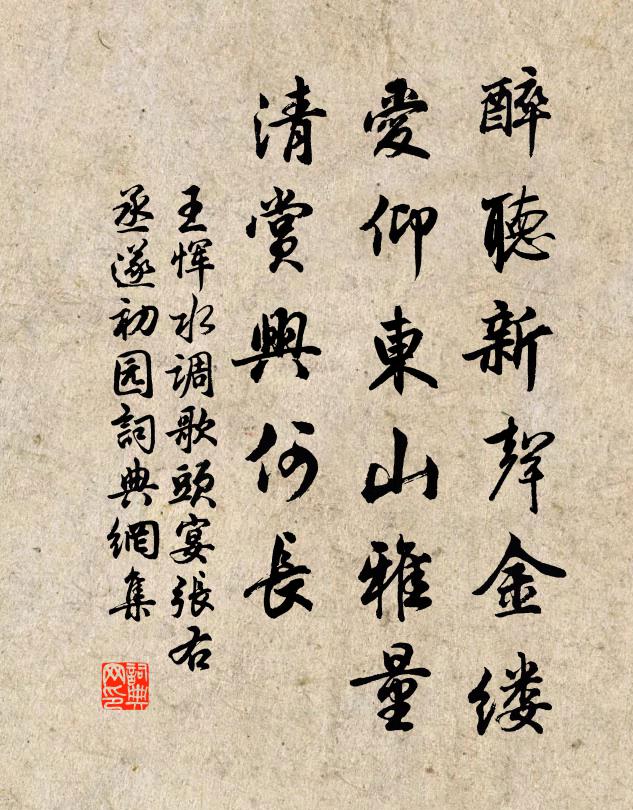 醉聽新聲金缕
愛仰東山雅量
清賞興何長
王恽水调歌頭宴張右
丞遂初园詞典網集
詞典网印